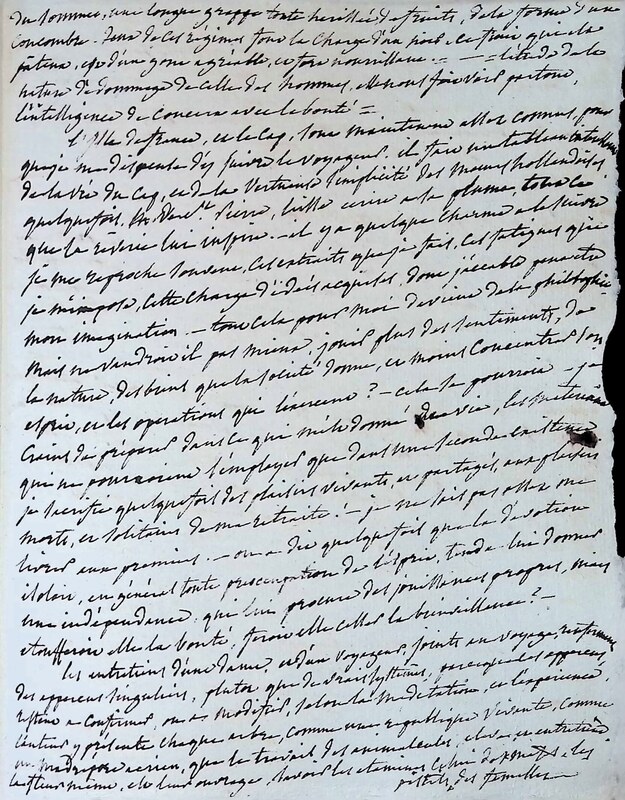 du sommet, une longue grappe toute herissée de fruits, de la forme d'un
concombre. deux de ces régimes font la charge d'un noir, ce fruit qui est
pateux, est d'un gout agréable, et fort nourrissant. = = l'étude de la
nature dedommage de celle des hommes, elle nous fait voir partout,
l'intelligence de concert avec la bonté =
l'Isle de france, et le Cap, sont maintenant assez connus, pour
que je me dispense d'y suivre le voyageur. il fait un tableau
de la vie du Cap, et de la vertueuse simplicité des moeurs hollandoises
quelquefois, St. Pierre, laisse errer sa plume, tout ce
que la reverie lui inspire. il y a quelque charme a le suivre
je me reproche souvent, ces extraits que je fais, ces fatigues que
je m'impose, cette charge d'idées acquises, dont j'accable peut etre
mon imagination. — tout cela pour moi devient de la philosophie
mais ne vaudroit il pas mieux jouir plus des sentiments, de
la nature, des biens que la société donne, et moins concentrer son
esprit, et les operations qui l'exercent? — cela se pourroit — je
crains de préparer dans ce qui m'est donné de vie, les materiaux
qui ne pourroient s'employer que dans une seconde existence
je sacrifie quelquefois des plaisirs vivants, et partagés, aux plaisirs
morts, et solitaires de ma retraite! — je ne sais pas assez me
livrer aux premiers. — on a dit quelquefois que la devotion
isoloit, en général toute preoccupation de l'esprit, tend a lui donner
une indépendance, que lui procure des jouissances propres, mais
etoufferoit elle la bonté, seroit elle cesser la bienveillance? —
les entretiens d'une dame, et d'un voyageur, joints au voyage, renferment
des apperçus singuliers, plutot que de vrais systèmes, parceque les apperçus,
restent a confirmer, ou a modifier, selon la meditation, et l'experience,
l'auteur y présente chaque arbre, comme une republique vivante, comme
un madrepore aerien, que le travail des animalcules, eleve et entretient
la fleur même, est leur ouvrage, savoir les etamines celui des males, les
pistils, des femelles —